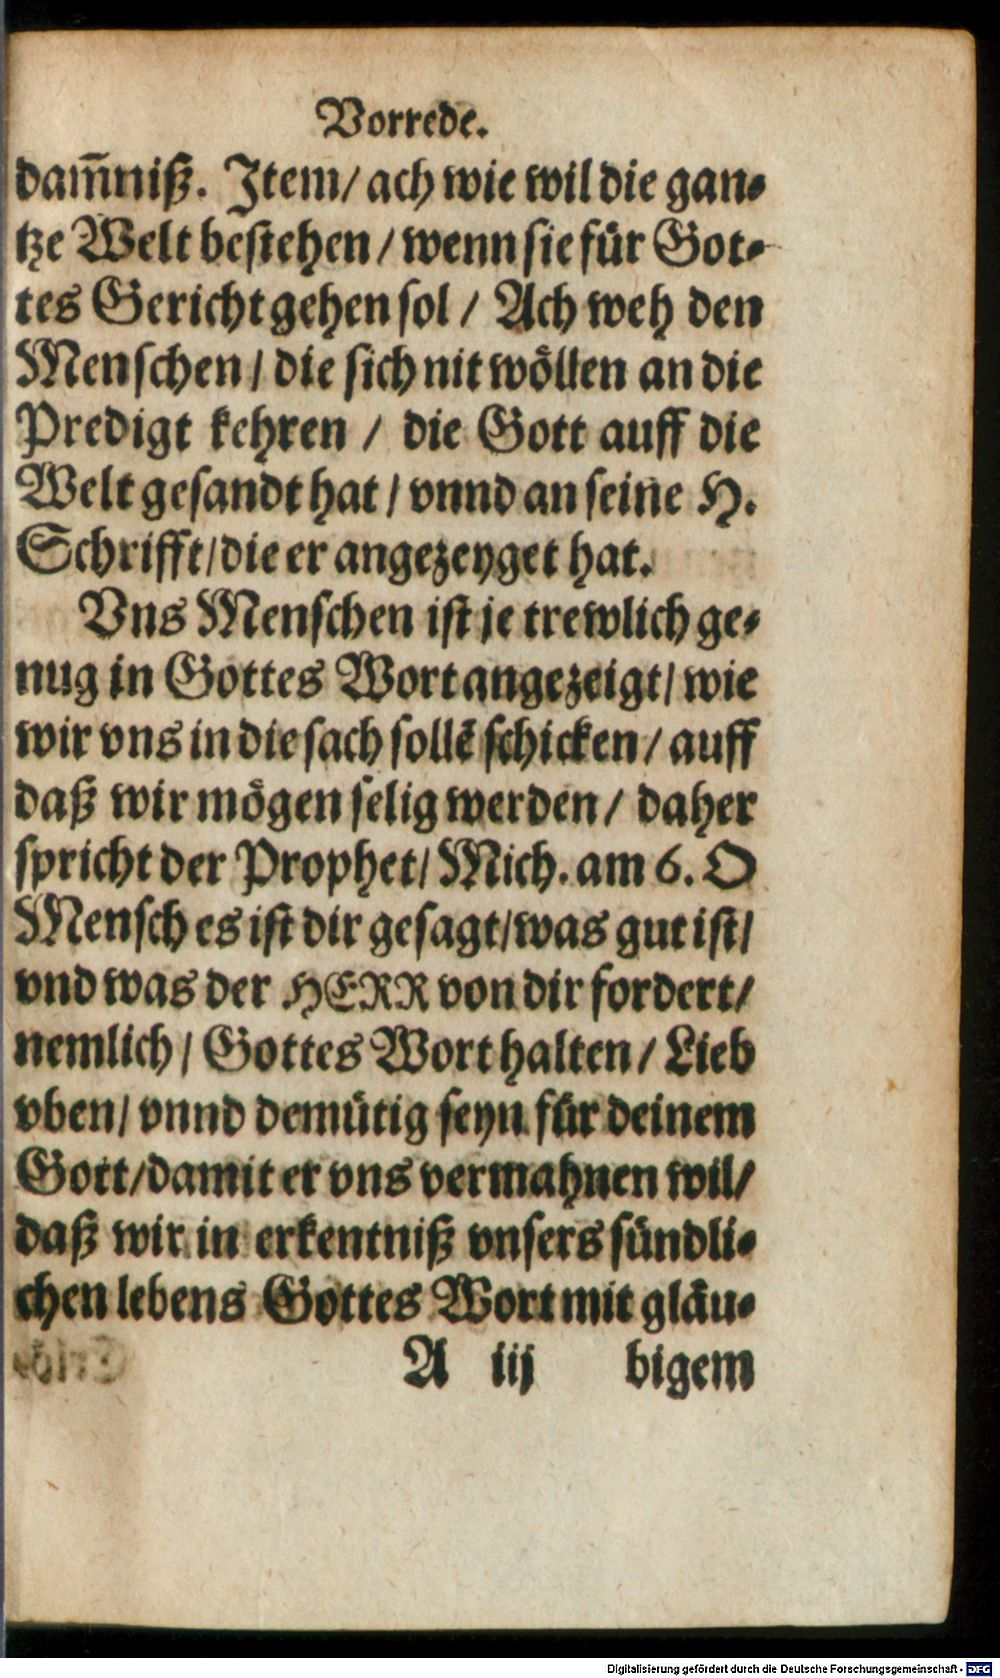 Vorrede.
dam̄niß. Item/ ach wie wil die gan⸗
tze Welt bestehen / wenn sie für Got⸗
tes Gericht gehen sol / Ach weh den
Menschen / die sich nit wöllen an die
Predigt kehren / die Gott auff die
Welt gesandt hat / vnnd an seine H.
Schrifft/ die er angezeyget hat.
Vns Menschen ist je trewlich ge⸗
nug in Gottes Wort angezeigt/ wie
wir vns in die sach sollē schicken / auff
daß wir mögen selig werden / daher
spricht der Prophet/ Mich. am 6. O
Mensch es ist dir gesagt/ was gut ist/
vnd was der HERR von dir fordert/
nemlich / Gottes Wort halten / Lieb
vben/ vnnd demütig seyn für deinem
Gott/ damit er vns vermahnen wil/
daß wir in erkentniß vnsers sündli⸗
chen lebens Gottes Wort mit gläu⸗
A iij bigem
Digitalisierung gefördert durch die Deutsche Forschungsgemeinschaft - DFG